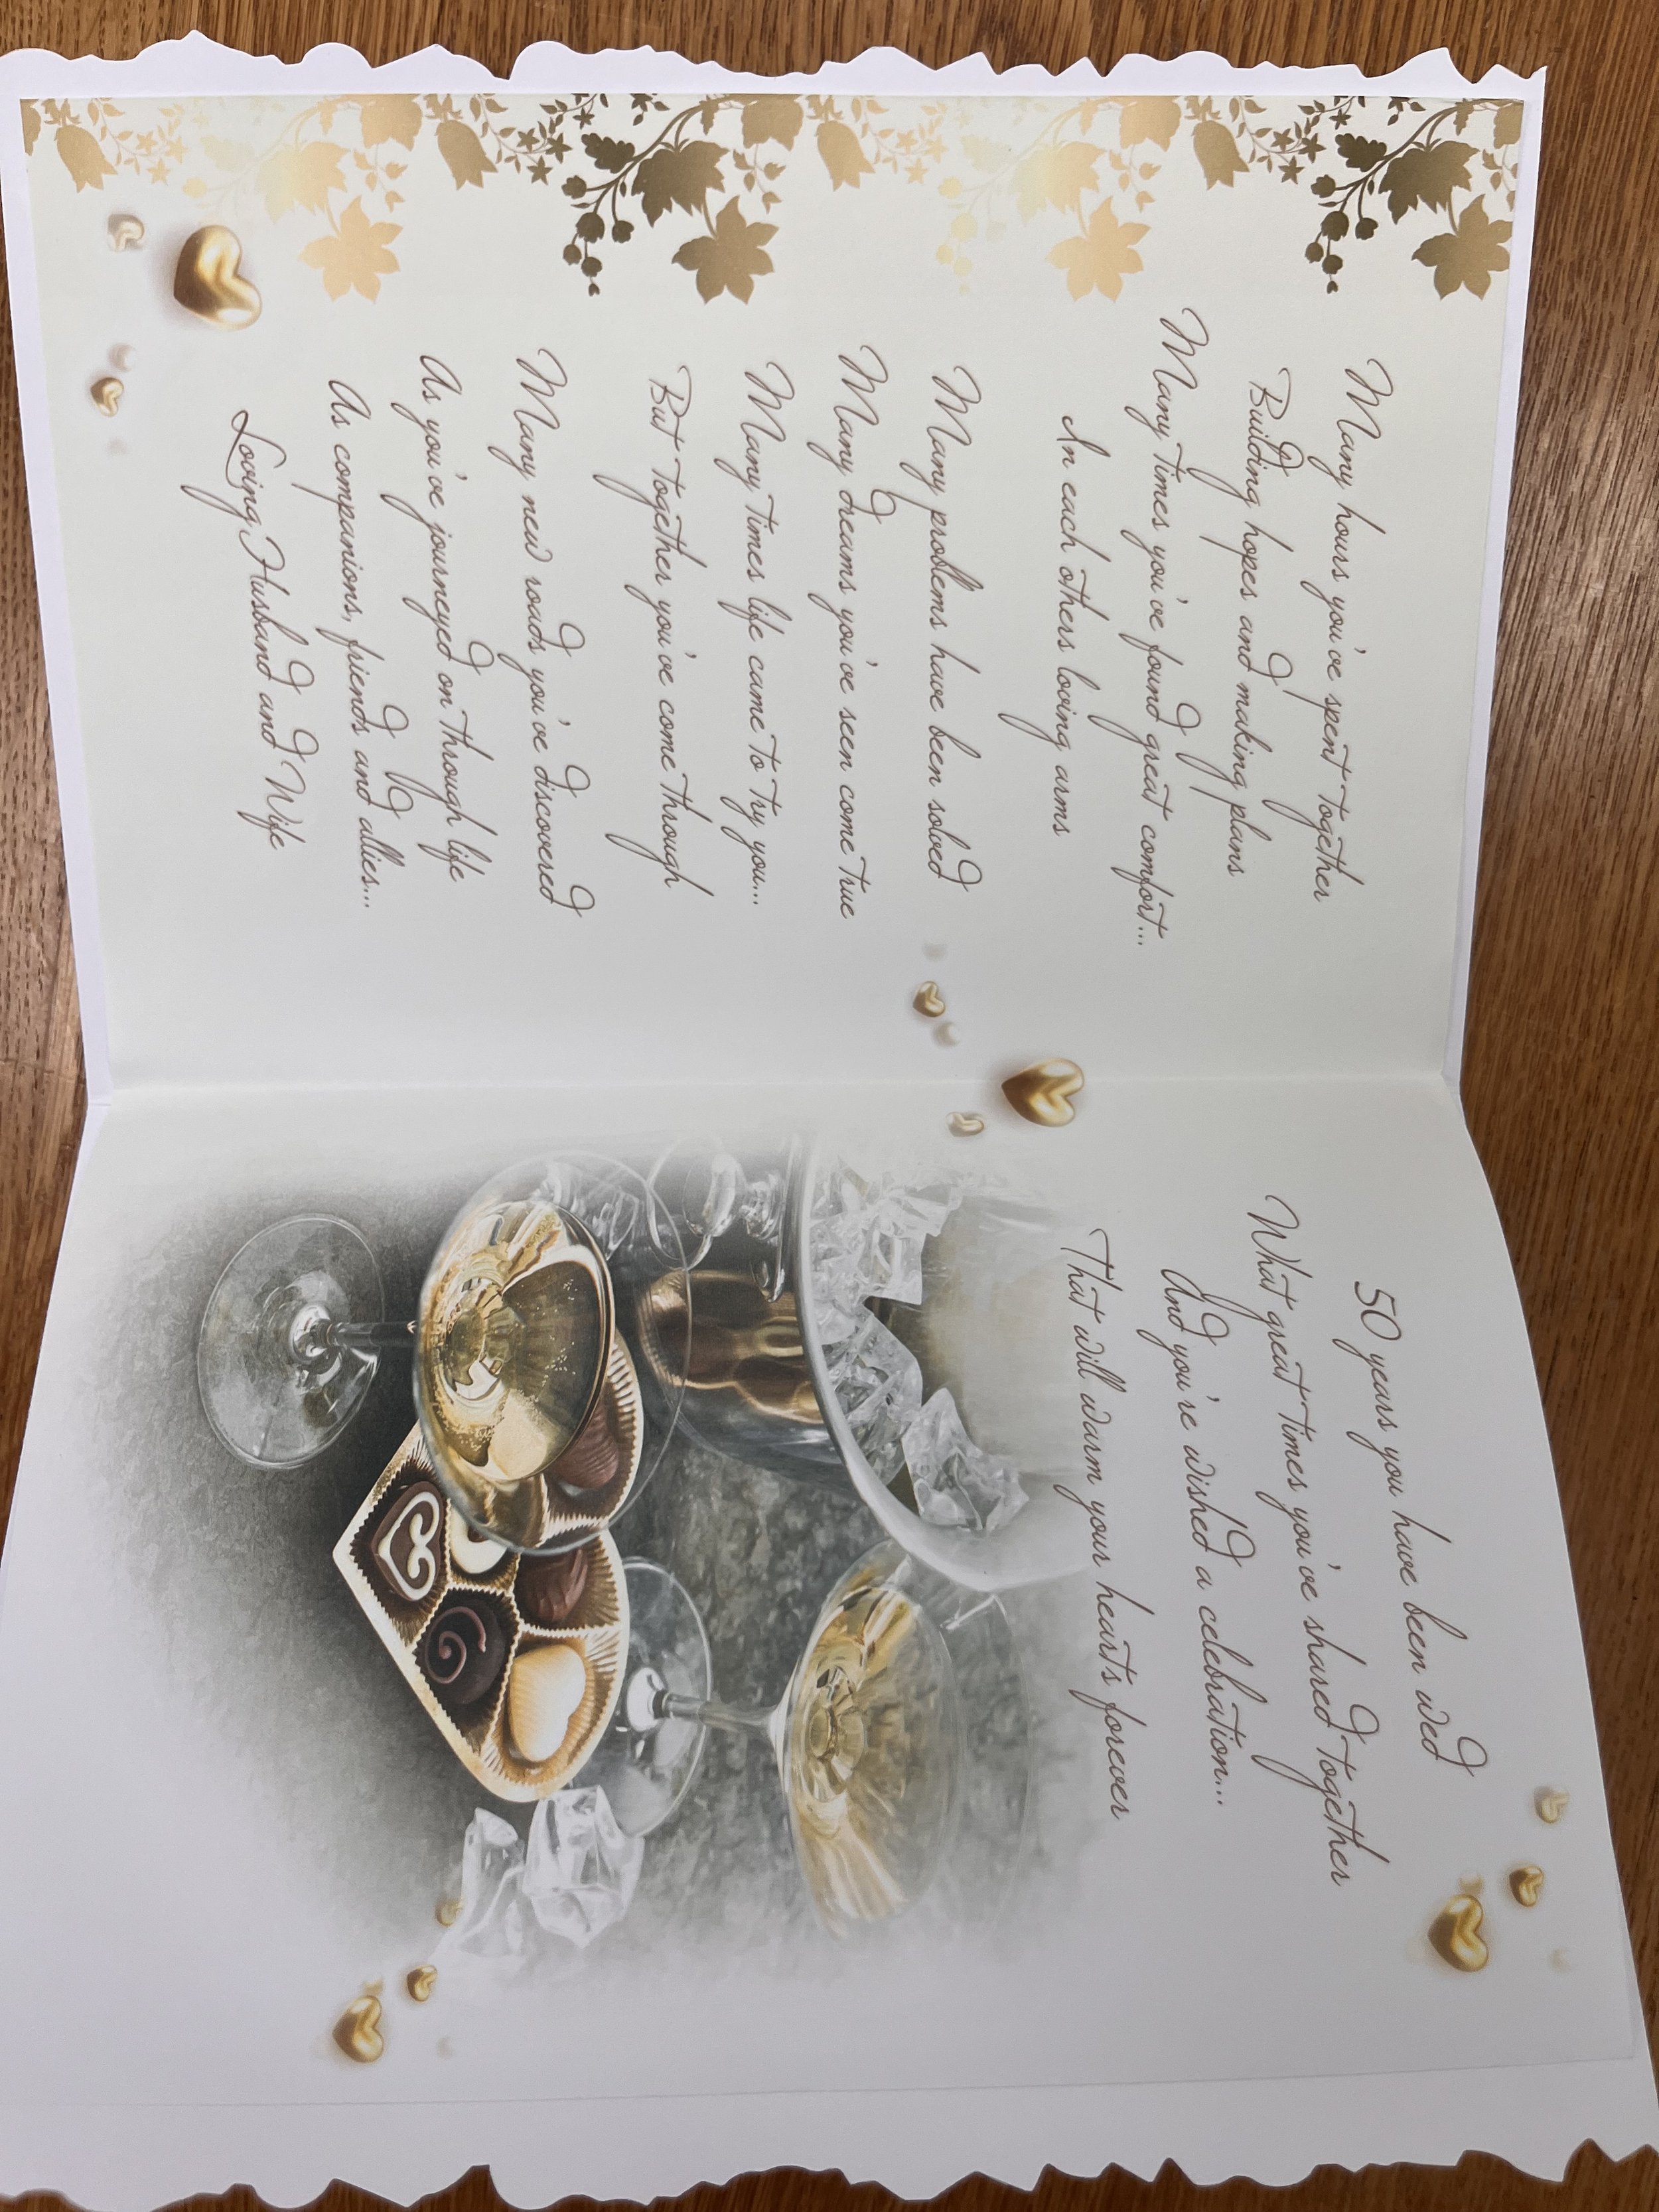 Many hours you've spent together
Building hopes and making plans
Many times you've found great comfort...
In each others loving arms
Many problems have been solved
Many dreams you've seen come true
Many times life came to try you...
But together you've come through
Many new roads you've discovered
As you've journeyed on through life
As companions, friends and allies...
Loving Husband and Wife
50 years you have been wed
What great times you've shared together
And you're wished a celebration...
That will warm your hearts forever